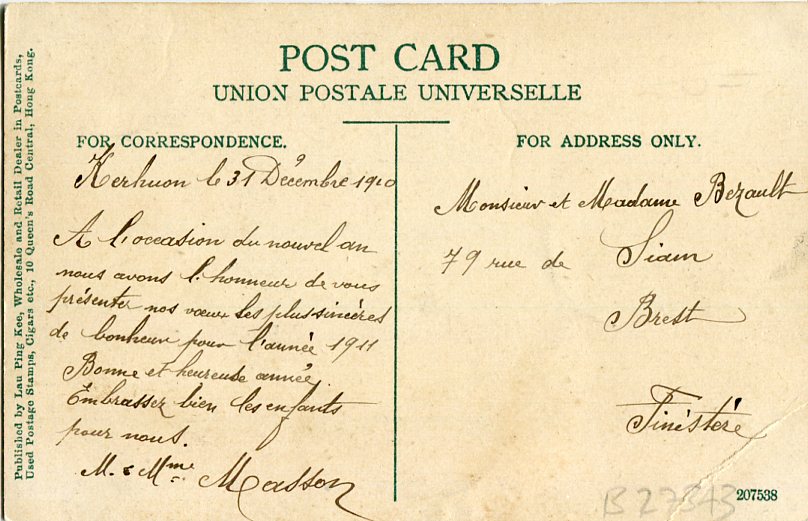 POST CARD
UNION POSTALE UNIVERSELLE
Published by Lau Ping Kee, Wholesale and Retail Dealer in Postcards,
Used Postage Stamps, Cigars etc., 10 Queen's Road Central, Hong Kong.
FOR CORRESPONDENCE.
Kerhuon le 31 Décembre 1910
A l'occasion du nouvel an
nous avons l'honneur de vous
présenter nos vœux les plus sincères
de bonheur pour l'année 1911
Bonne et heureuse année.
Embrassez bien les enfants
pour nous.
M. & Mme Masson
FOR ADDRESS ONLY.
Monsieur et Madame Bezault
79 rue de Siam
Brest
Finistère
B 27343
207538